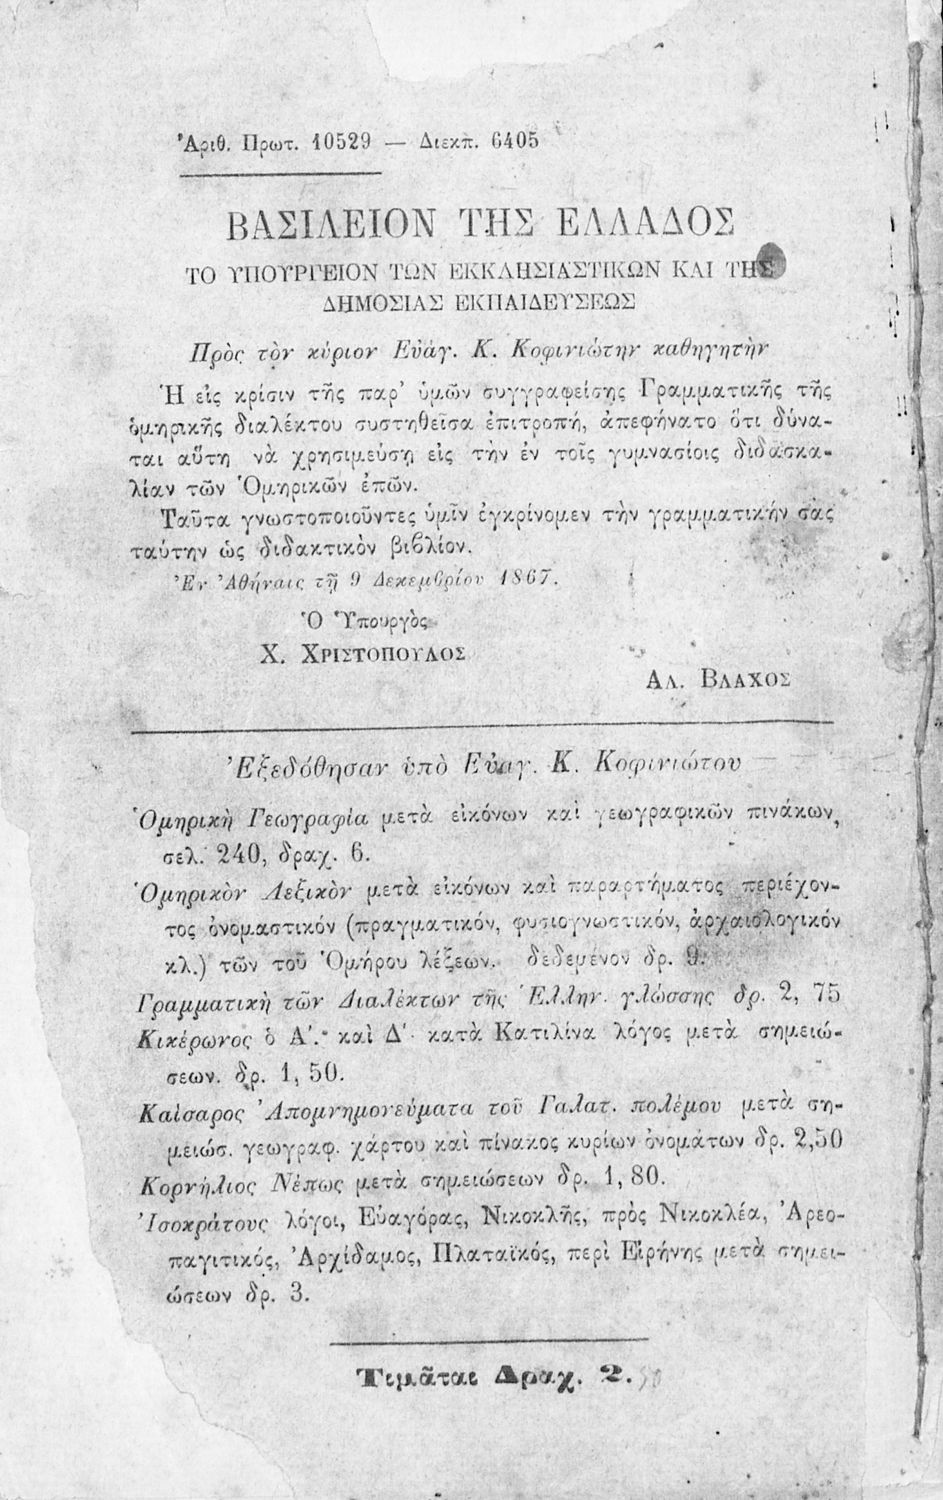 Ἀριθ. Πρωτ. 10529 — Διεκπ. 6405
ΒΑΣΙΛΕΙΟΝ ΤΗΣ ΕΛΛΑΔΟΣ
ΤΟ ΥΠΟΥΡΓΕΙΟΝ ΤΩΝ ΕΚΚΛΗΣΙΑΣΤΙΚΩΝ ΚΑΙ ΤΗΣ
ΔΗΜΟΣΙΑΣ ΕΚΠΑΙΔΕΥΣΕΩΣ
Πρὸς τὸν κύριον Εὐάγ. Κ. Κοφινιώτην καθηγητὴν
Ἡ εἰς κρίσιν τῆς παρ’ ὑμῶν συγγραφείσης Γραμματικῆς τῆς
ὁμηρικῆς διαλέκτου συστηθεῖσα ἐπιτροπή, ἀπεφήνατο ὅτι δύνα-
ται αὕτη νὰ χρησιμεύσῃ εἰς τὴν ἐν τοῖς γυμνασίοις διδασκα-
λίαν τῶν Ὁμηρικῶν ἐπῶν.
Ταῦτα γνωστοποιοῦντες ὑμῖν ἐγκρίνομεν τὴν γραμματικήν σας
ταύτην ὡς διδακτικὸν βιβλίον.
Ἐν Ἀθήναις τῇ 9 Δεκεμβρίου 1867.
Ὁ Ὑπουργὸς
Χ. ΧΡΙΣΤΟΠΟΥΛΟΣ
ΑΛ. ΒΛΑΧΟΣ
Ἐξεδόθησαν ὑπὸ Εὐαγ. Κ. Κοφινιώτου
Ὁμηρικὴ Γεωγραφία μετὰ εἰκόνων καὶ γεωγραφικῶν πινάκων,
σελ. 240, δραχ. 6.
Ὁμηρικὸν Λεξικὸν μετὰ εἰκόνων καὶ παραρτήματος περιέχον-
τος ὀνομαστικόν (πραγματικόν, φυσιογνωστικόν, ἀρχαιολογικόν
κλ.) τῶν τοῦ Ὁμήρου λέξεων. δεδεμένον δρ. 9.
Γραμματικὴ τῶν Διαλέκτων τῆς Ἑλλην. γλώσσης δρ. 2, 75
Κικέρωνος ὁ Α΄. καὶ Δ΄ κατὰ Κατιλίνα λόγος μετὰ σημειώ-
σεων. δρ. 1, 50.
Καίσαρος Ἀπομνημονεύματα τοῦ Γαλατ. πολέμου μετὰ ση-
μειώσ. γεωγραφ. χάρτου καὶ πίνακος κυρίων ὀνομάτων δρ. 2,50
Κορνήλιος Νέπως μετὰ σημειώσεων δρ. 1, 80.
Ἰσοκράτους λόγοι, Εὐαγόρας, Νικοκλῆς, πρὸς Νικοκλέα, Ἀρεο-
παγιτικός, Ἀρχίδαμος, Πλαταϊκός, περὶ Εἰρήνης μετὰ σημει-
ώσεων δρ. 3.
Τιμᾶται Δραχ. 2.50